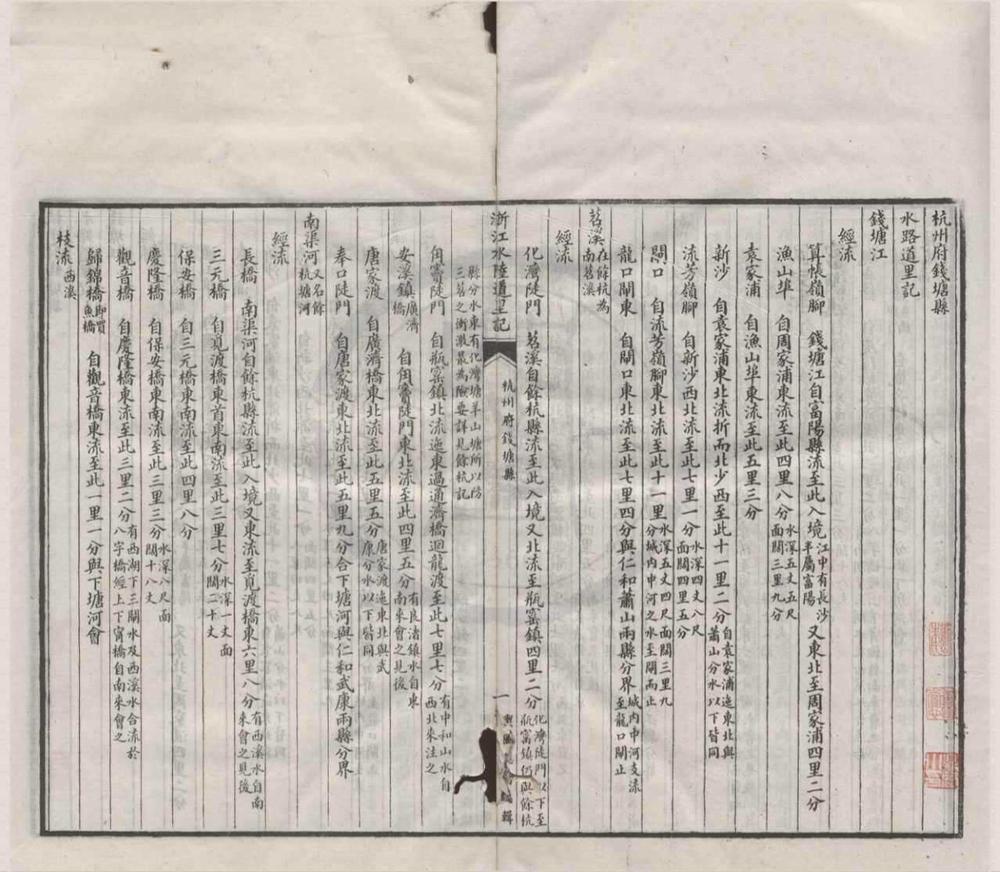 杭州府錢塘縣
水路道里記
錢塘江
經流
算帳嶺腳　錢塘江自富陽縣流至此入境江中有長沙半屬富陽又東北至周家浦四里二分
漁山埠　自周家浦東流至此四里八分水深五丈五尺面闊三里九分
袁家浦　自漁山埠東流至此五里三分
新沙　自袁家浦東北流折而北少西至此十一里二分自袁家浦迤東北與蕭山分水以下皆同
流芳嶺腳　自新沙西北流至此七里一分水深四丈八尺面闊四里五分
閘口　自流芳嶺腳東北流至此十一里水深五丈四尺面闊三里九分城內中河之水至閘而止
龍口閘東　自閘口東北流至此七里四分與仁和蕭山兩縣分界城內中河支流至龍口閘止
苕溪在餘杭為南苕溪
經流
化灣陡門　苕溪自餘杭縣流至此入境又北流至瓶窰鎮四里二分化灣陡門以下至瓶窰鎮仍與餘杭
浙江水陸道里記　杭州府錢塘縣　一　輿圖局編輯
縣分水東有化灣塘羊山塘所以防三苕之衝激最為險要詳見餘杭記
角竇陡門　自瓶窰鎮北流迤東過通濟橋迴龍渡至此七里七分有中和山水自西北來注之
安溪鎮廣濟橋　自角竇陡門東北流至此四里五分有良渚鎮水自東南來會之見後
唐家渡　自廣濟橋東北流至此五里五分唐家渡迤東北與武康分水以下皆同
奉口陡門　自唐家渡東北流至此五里九分合下塘河與仁和武康兩縣分界
南渠河又名餘杭塘河
經流
長橋　南渠河自餘杭縣流至此入境又東流至覓渡橋東六里八分有西溪水自南來會之見後
三元橋　自覓渡橋東首東南流至此三里七分水深一丈面闊二十丈
保安橋　自三元橋東南流至此四里八分
慶隆橋　自保安橋東南流至此三里三分水深八尺面闊十八丈
觀音橋　自慶隆橋東流至此三里二分有西湖下三閘水及西溪水合流於八字橋經上下甯橋自南來會之
歸錦橋即賣魚橋　自觀音橋東流至此一里一分與下塘河會
枝流西溪